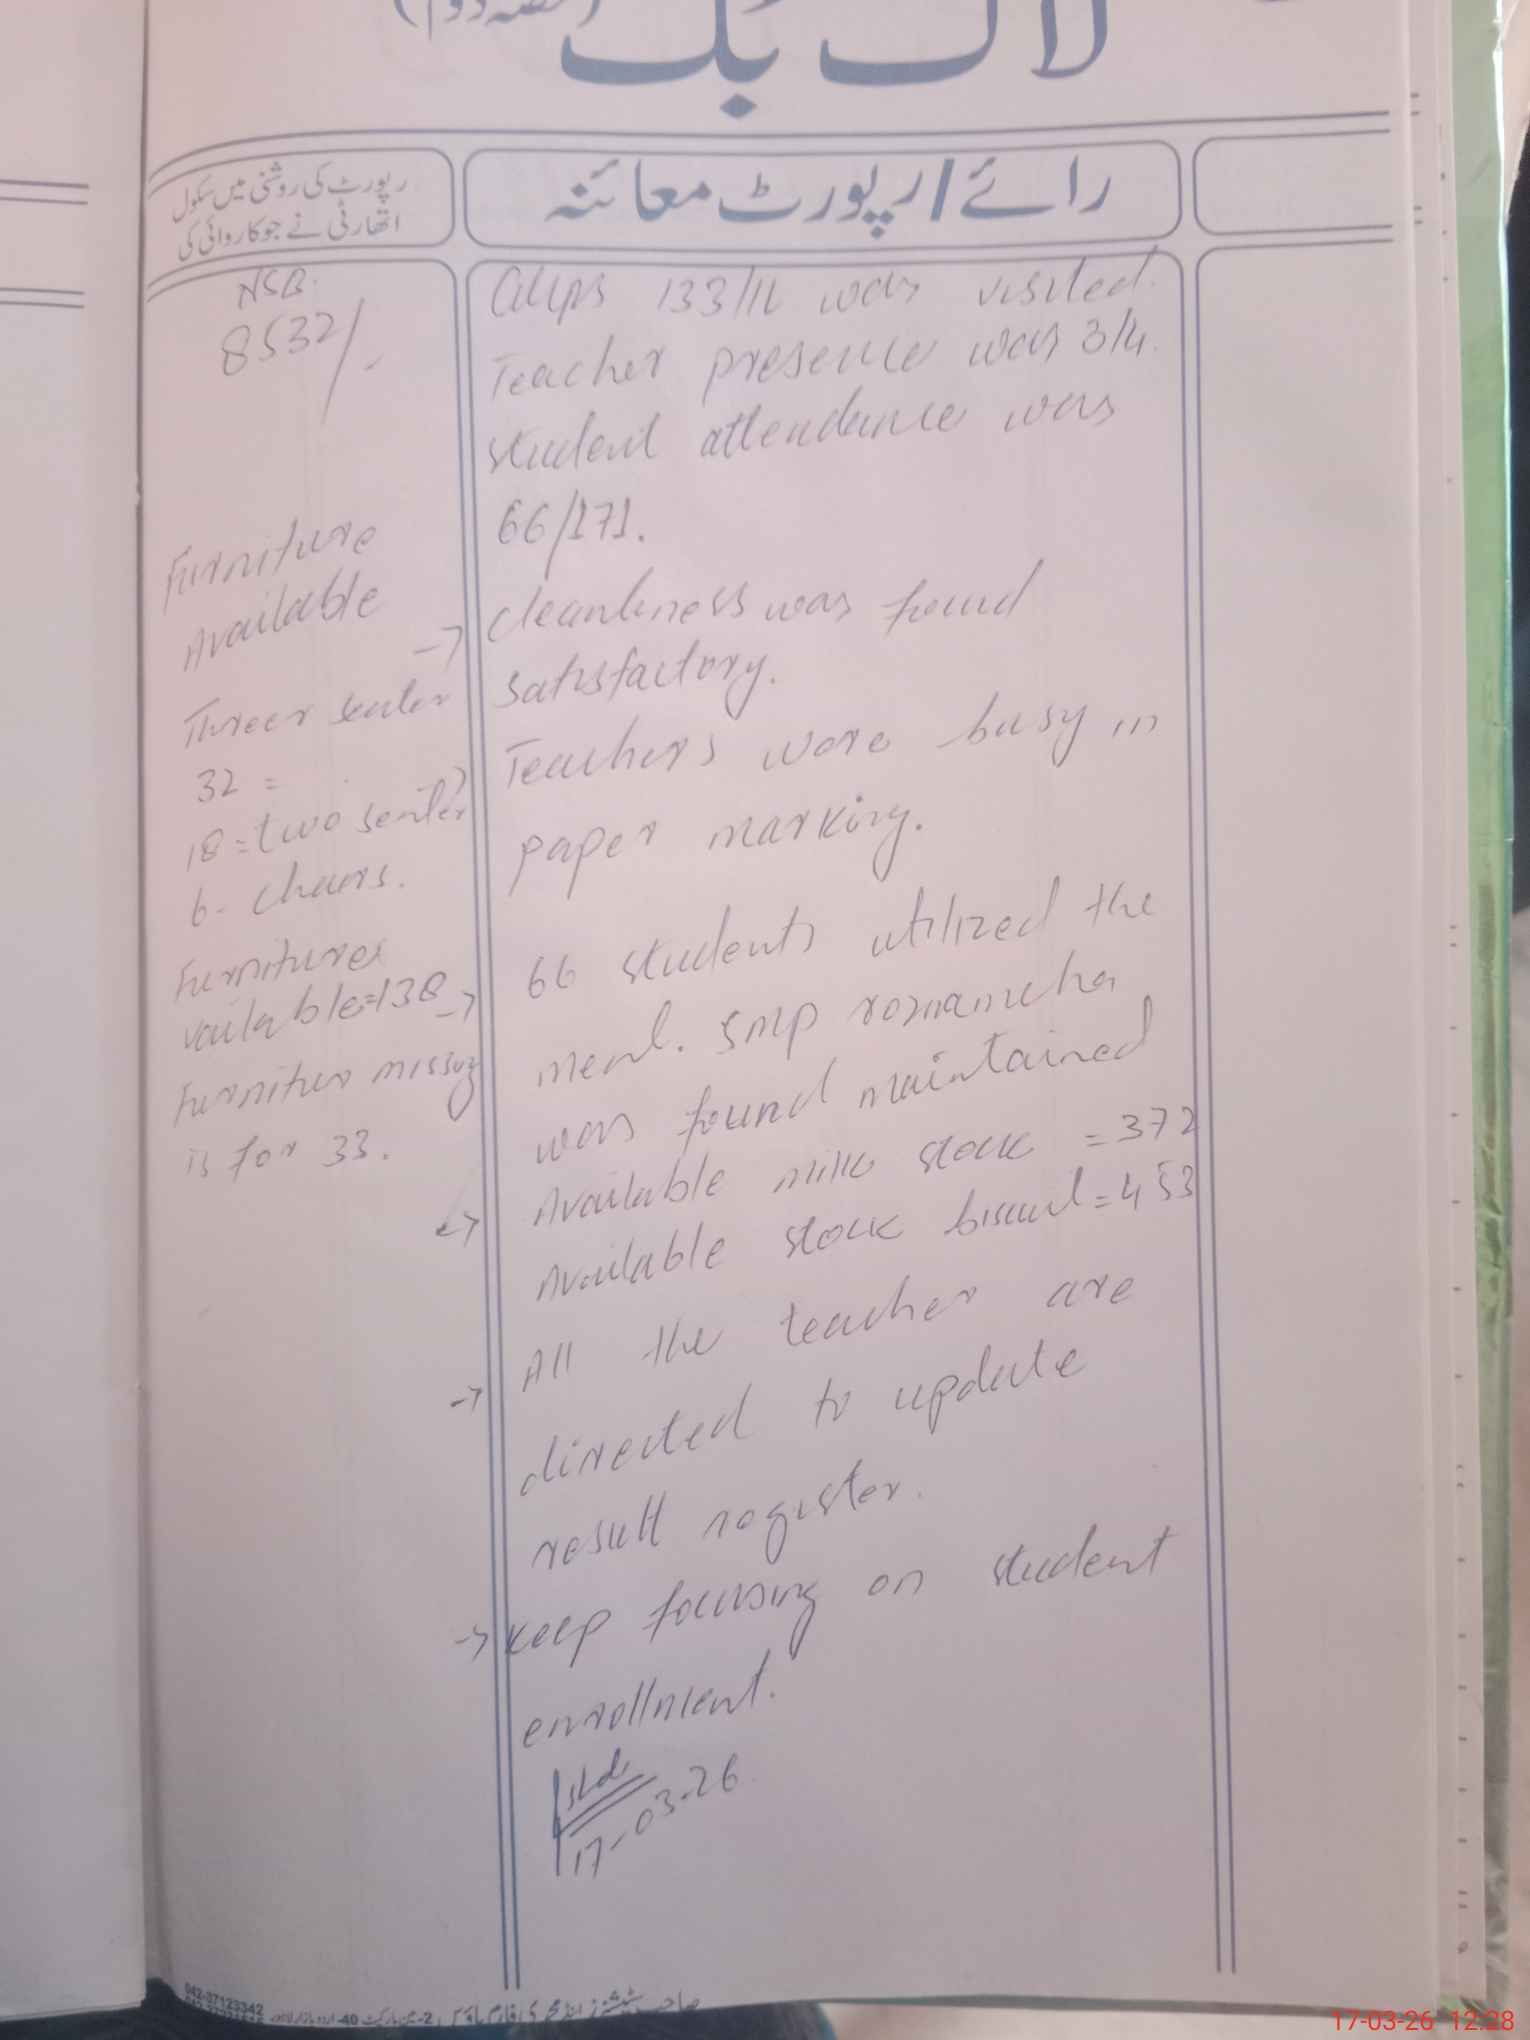 (حصہ دوم)
لاگ بک
رائے/رپورٹ معائنہ
رپورٹ کی روشنی میں سکول
اتھارٹی نے جو کاروائی کی
NSB.
8532/-
Furniture
Available
Threer seater
32 =
18 = two seater
6 - chairs.
Furnitures
vailable=138
Furnitur missing
is for 33.
GMPS 133/1L was visited.
Teacher presence was 3/4.
Student attendance was
66/171.
→ cleanliness was found
satisfactory.
Teachers were busy in
paper marking.
→ 66 students utilized the
meal. SMP roznamcha
was found maintained
→ Available milk stock = 372
Available stock biscuit = 453
→ All the teacher are
directed to update
result register.
→ keep focusing on student
enrollment.
17-03-26
042-37123342
17-03-26 12:28